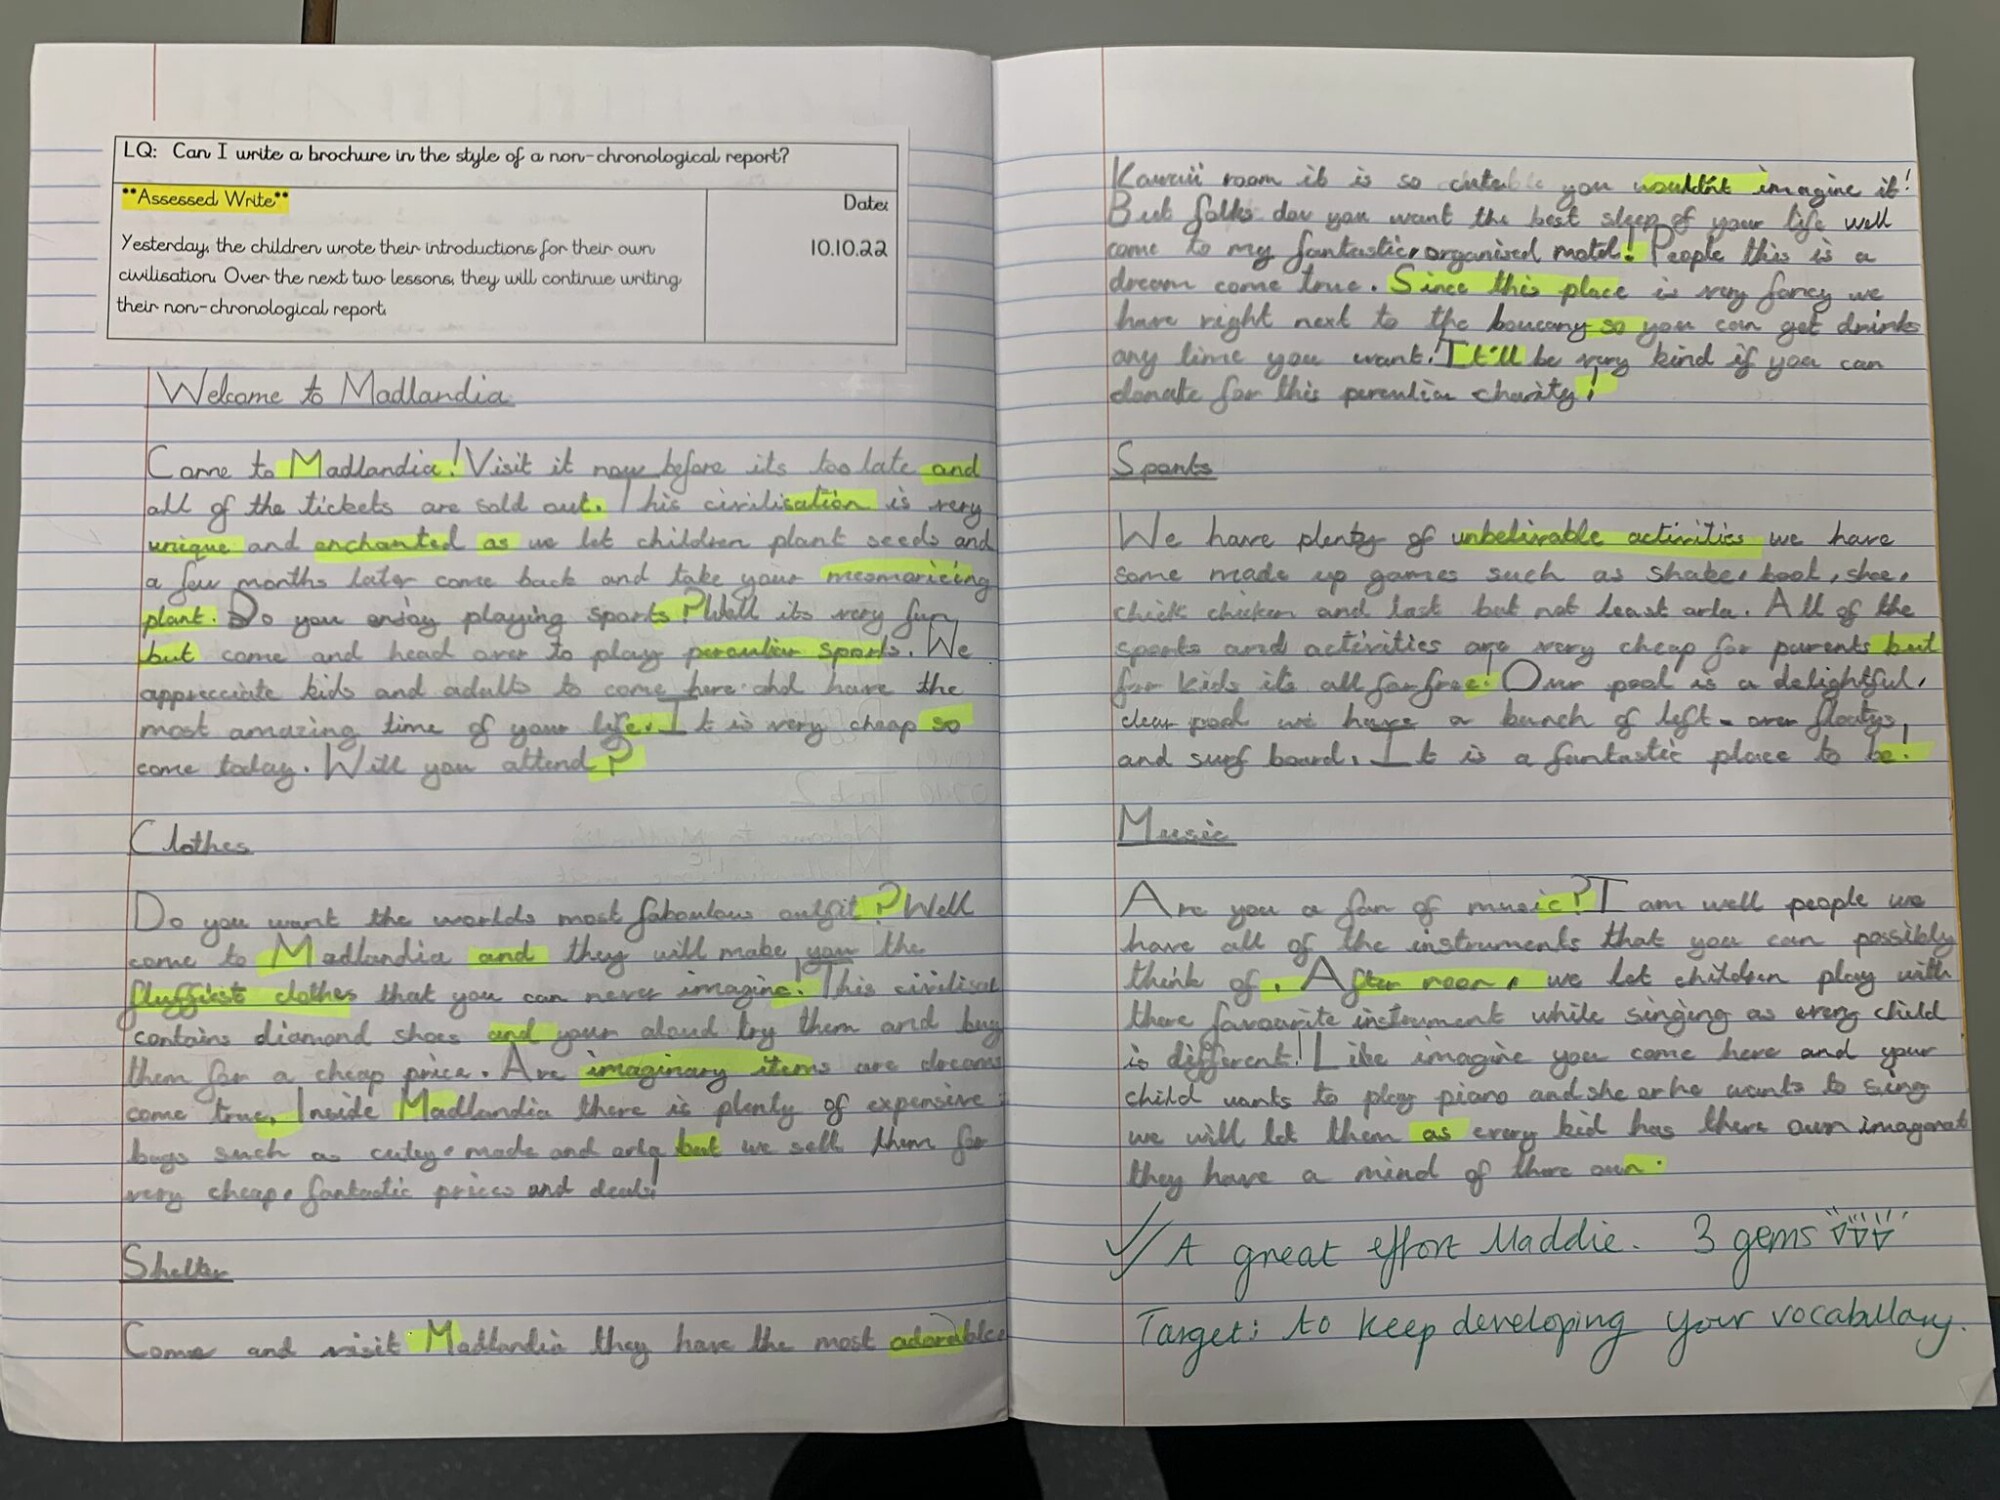 LQ: Can I write a brochure in the style of a non-chronological report?
**Assessed Write**
Date:
Yesterday, the children wrote their introductions for their own
10.10.22
civilisation. Over the next two lessons, they will continue writing
their non-chronological report.
Welcome to Madlandia
Come to Madlandia! Visit it now before its too late and
all of the tickets are sold out. This civilisation is very
unique and enchanted as we let children plant seeds and
a few months later come back and take your mesmoriceing
plant. Do you enjoy playing sports? Well its very fun
but come and head over to play perculiar sports. We
appreciate kids and adults to come here and have the
most amazing time of your life. It is very cheap so
come today. Will you attend?
Clothes
Do you want the worlds most faboulous outfit? Well
come to Madlandia and they will make you the
fluffiest clothes that you can never imagine! This civilisat
contains diamond shoes and your aloud try them and buy
them for a cheap price. Are imaginary items are dreams
come true. Inside Madlandia there is plenty of expensive
bags such as cutey, made and arla but we sell them for
very cheap, fantastic prices and deals!
Shelter
Come and visit Madlandia they have the most adorables
Kawaii room it is so you wouldn't imagine it!
But folks do you want the best sleep of your life well
come to my fantastic, organised, motel! People this is a
dream come true. Since this place is very fancy we
have right next to the so you can get drinks
any time you want! It'll be very kind if you can
donate for this charity!
Sports
We have plenty of unbelivable activities we have
some made up games such as shake, boot, shoe,
chick chicken and last but not least arla. All of the
sports and activities are very cheap for parents but
for kids its all for free! Our pool is a delightful,
clear pool we have a bunch of left-over floatys,
and surf board. It is a fantastic place to be!
Music
Are you a fan of music? I am well people we
have all of the instruments that you can possibly
think of. After noon, we let children play with
there favourite instrument while singing as every child
is different! Like imagine you come here and your
child wants to play piano and she or he wants to sing
we will let them as every kid has there own imaganat
they have a mind of there own.
A great effort Maddie. 3 gems
Target: to keep developing your vocabullary.